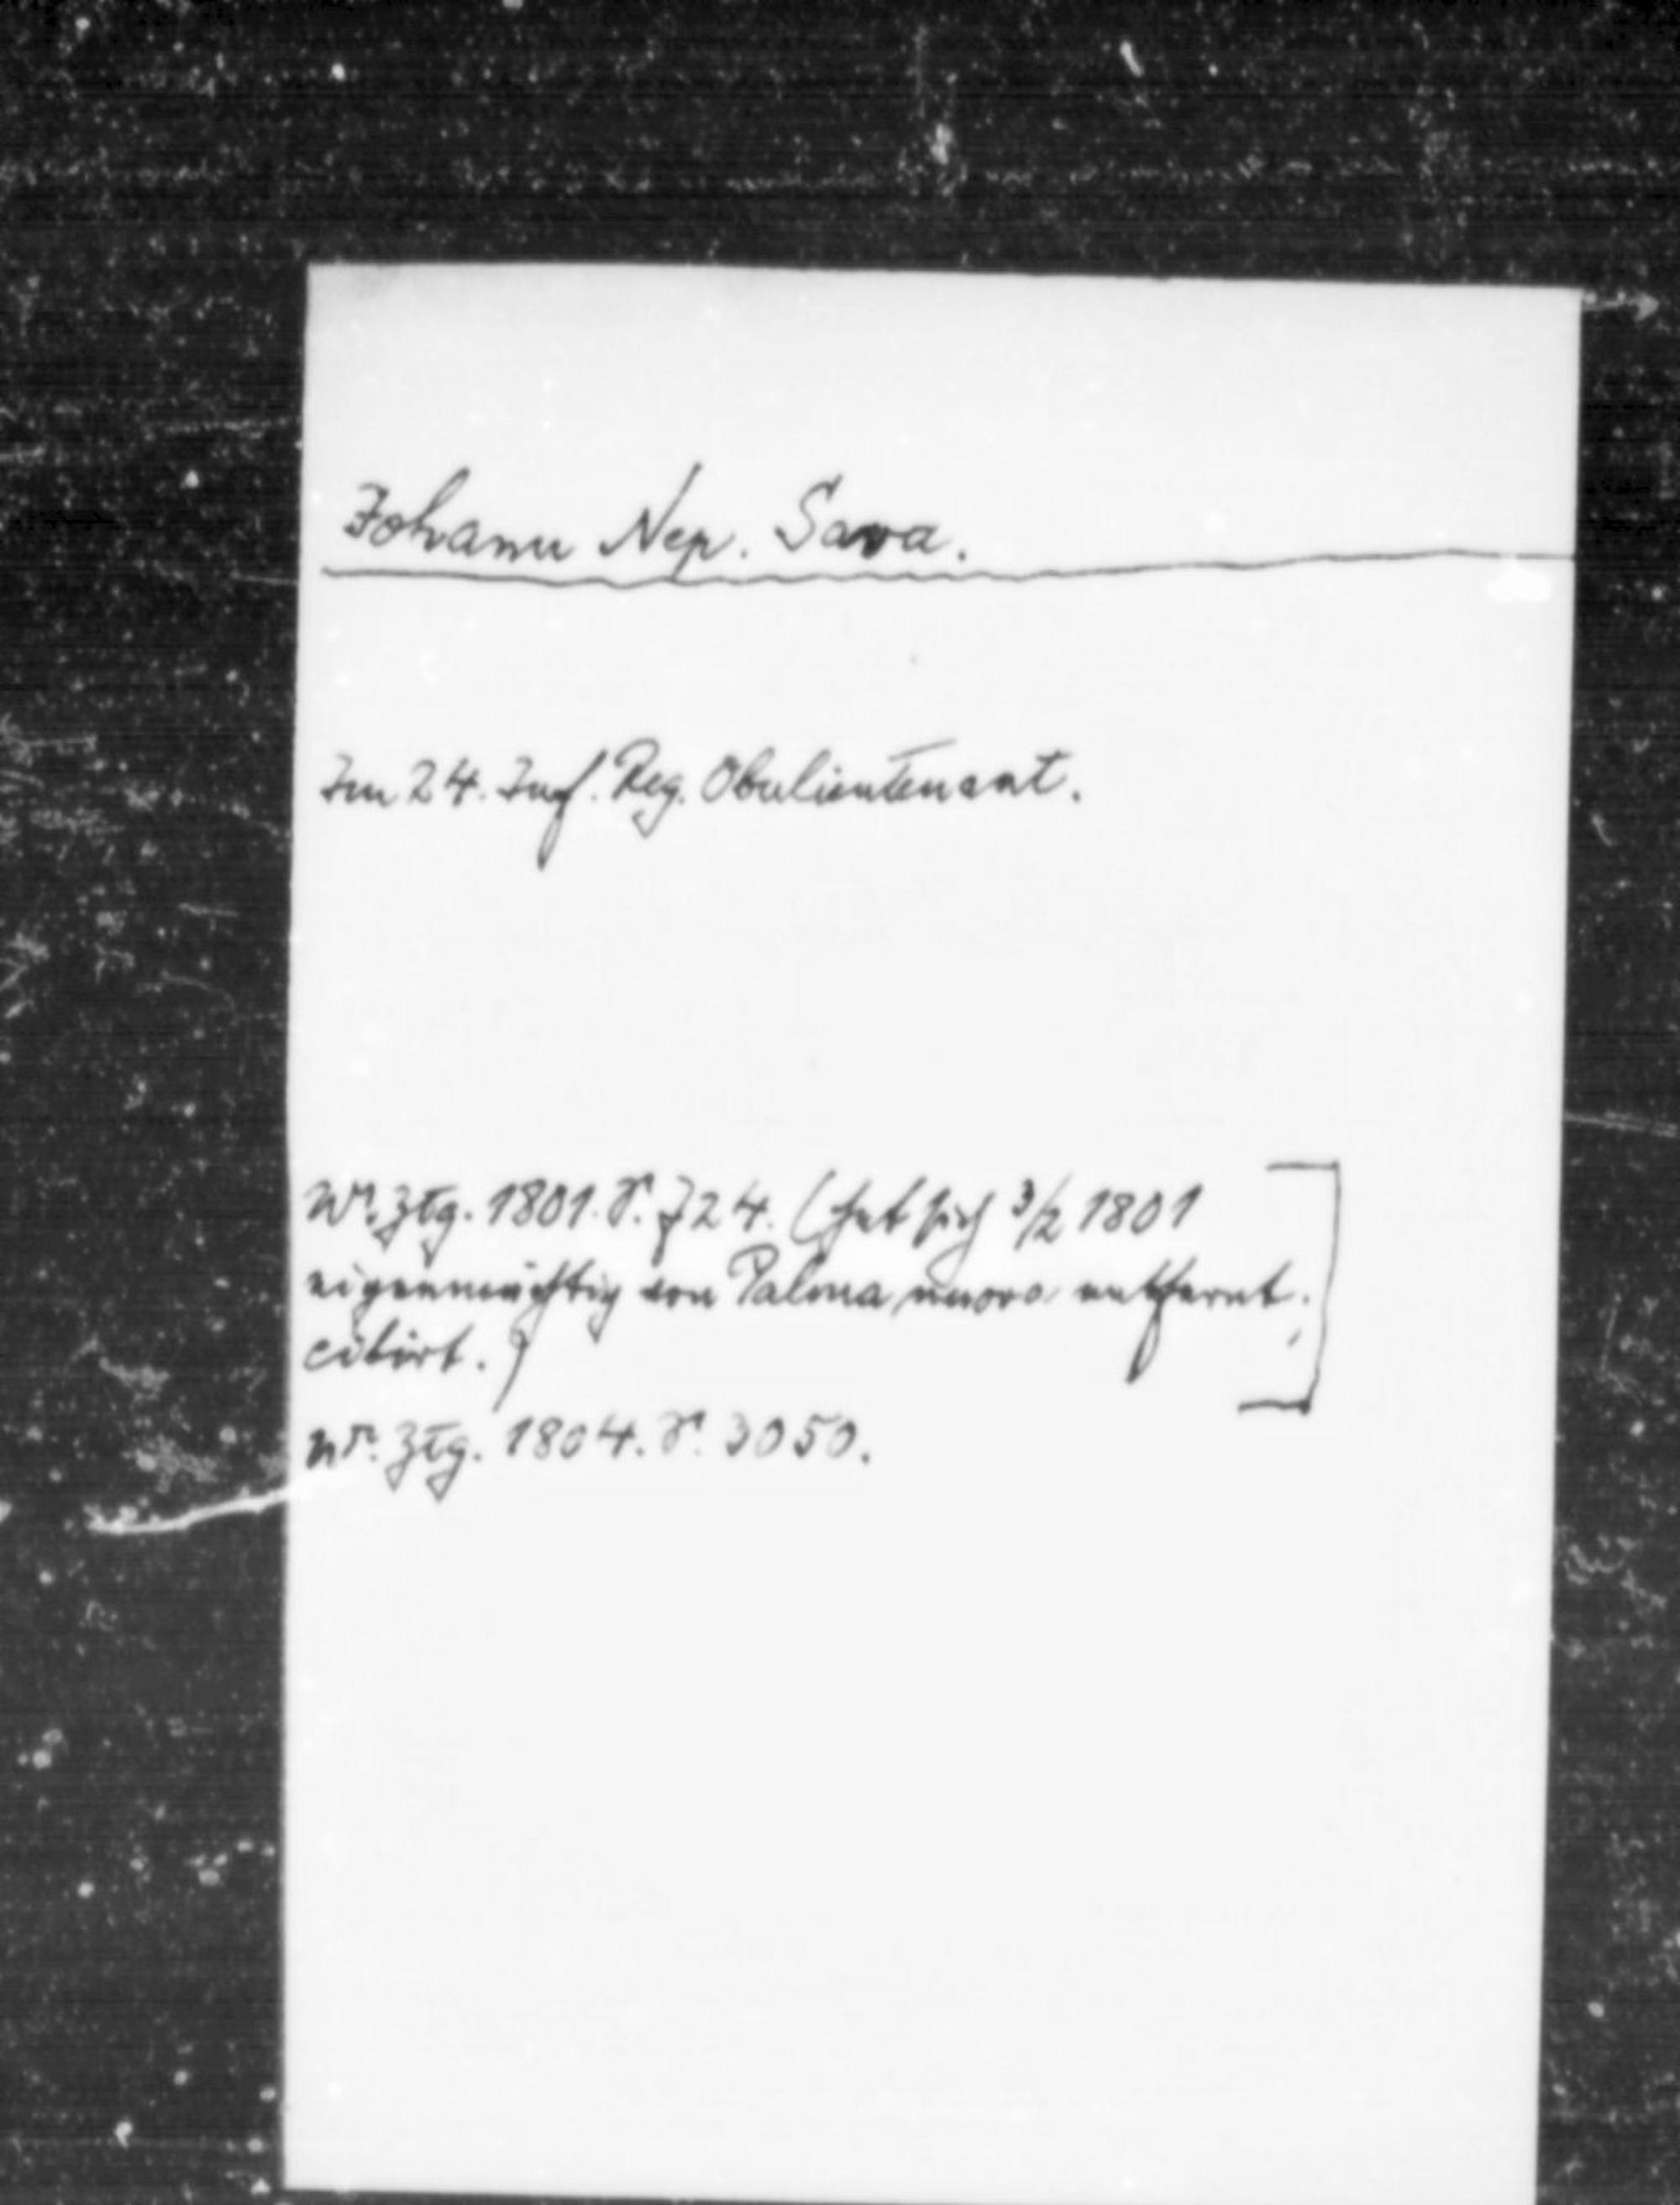 Johann Nep. Sava.
Im 24. Inf. Reg. Oberlieutenant.
Wr. Ztg. 1801. S. 724. (hat sich 3/2 1801
eigenmächtig von Palma nuova entfernt,
citirt.)
Wr. Ztg. 1804. S. 3050.